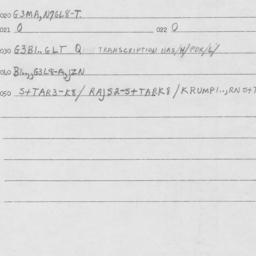 020 G3MA,N9GL8-T.
021 0 022 0
030 G3B1..GLT Q TRANSCRIPTION HAS/H/FOR/L/
040 B1..,G3L8-A,JZN
050 S+TAR3-K8/ RAJS2-S+TABK8/KRUMP1..,RN S+T